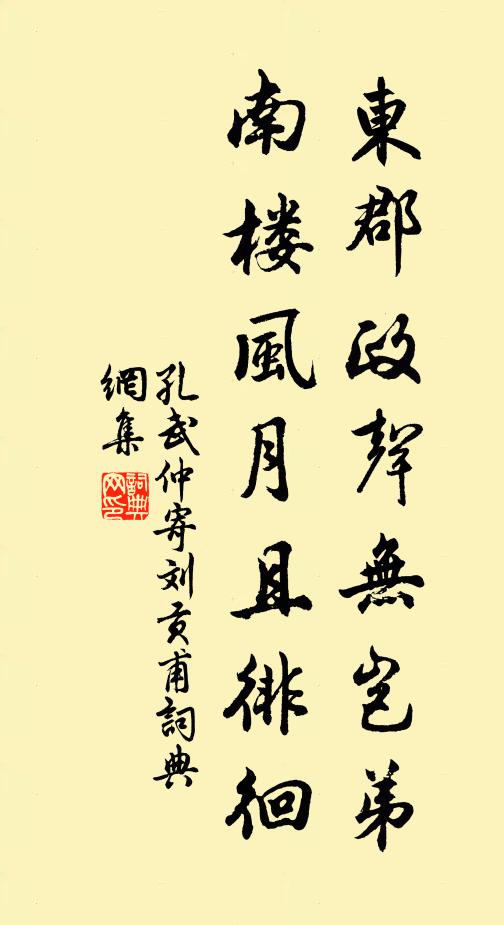 東郡政聲無岂弟
南楼風月且徘徊
孔武仲寄刘贡甫詞典
網集
詞典
网印